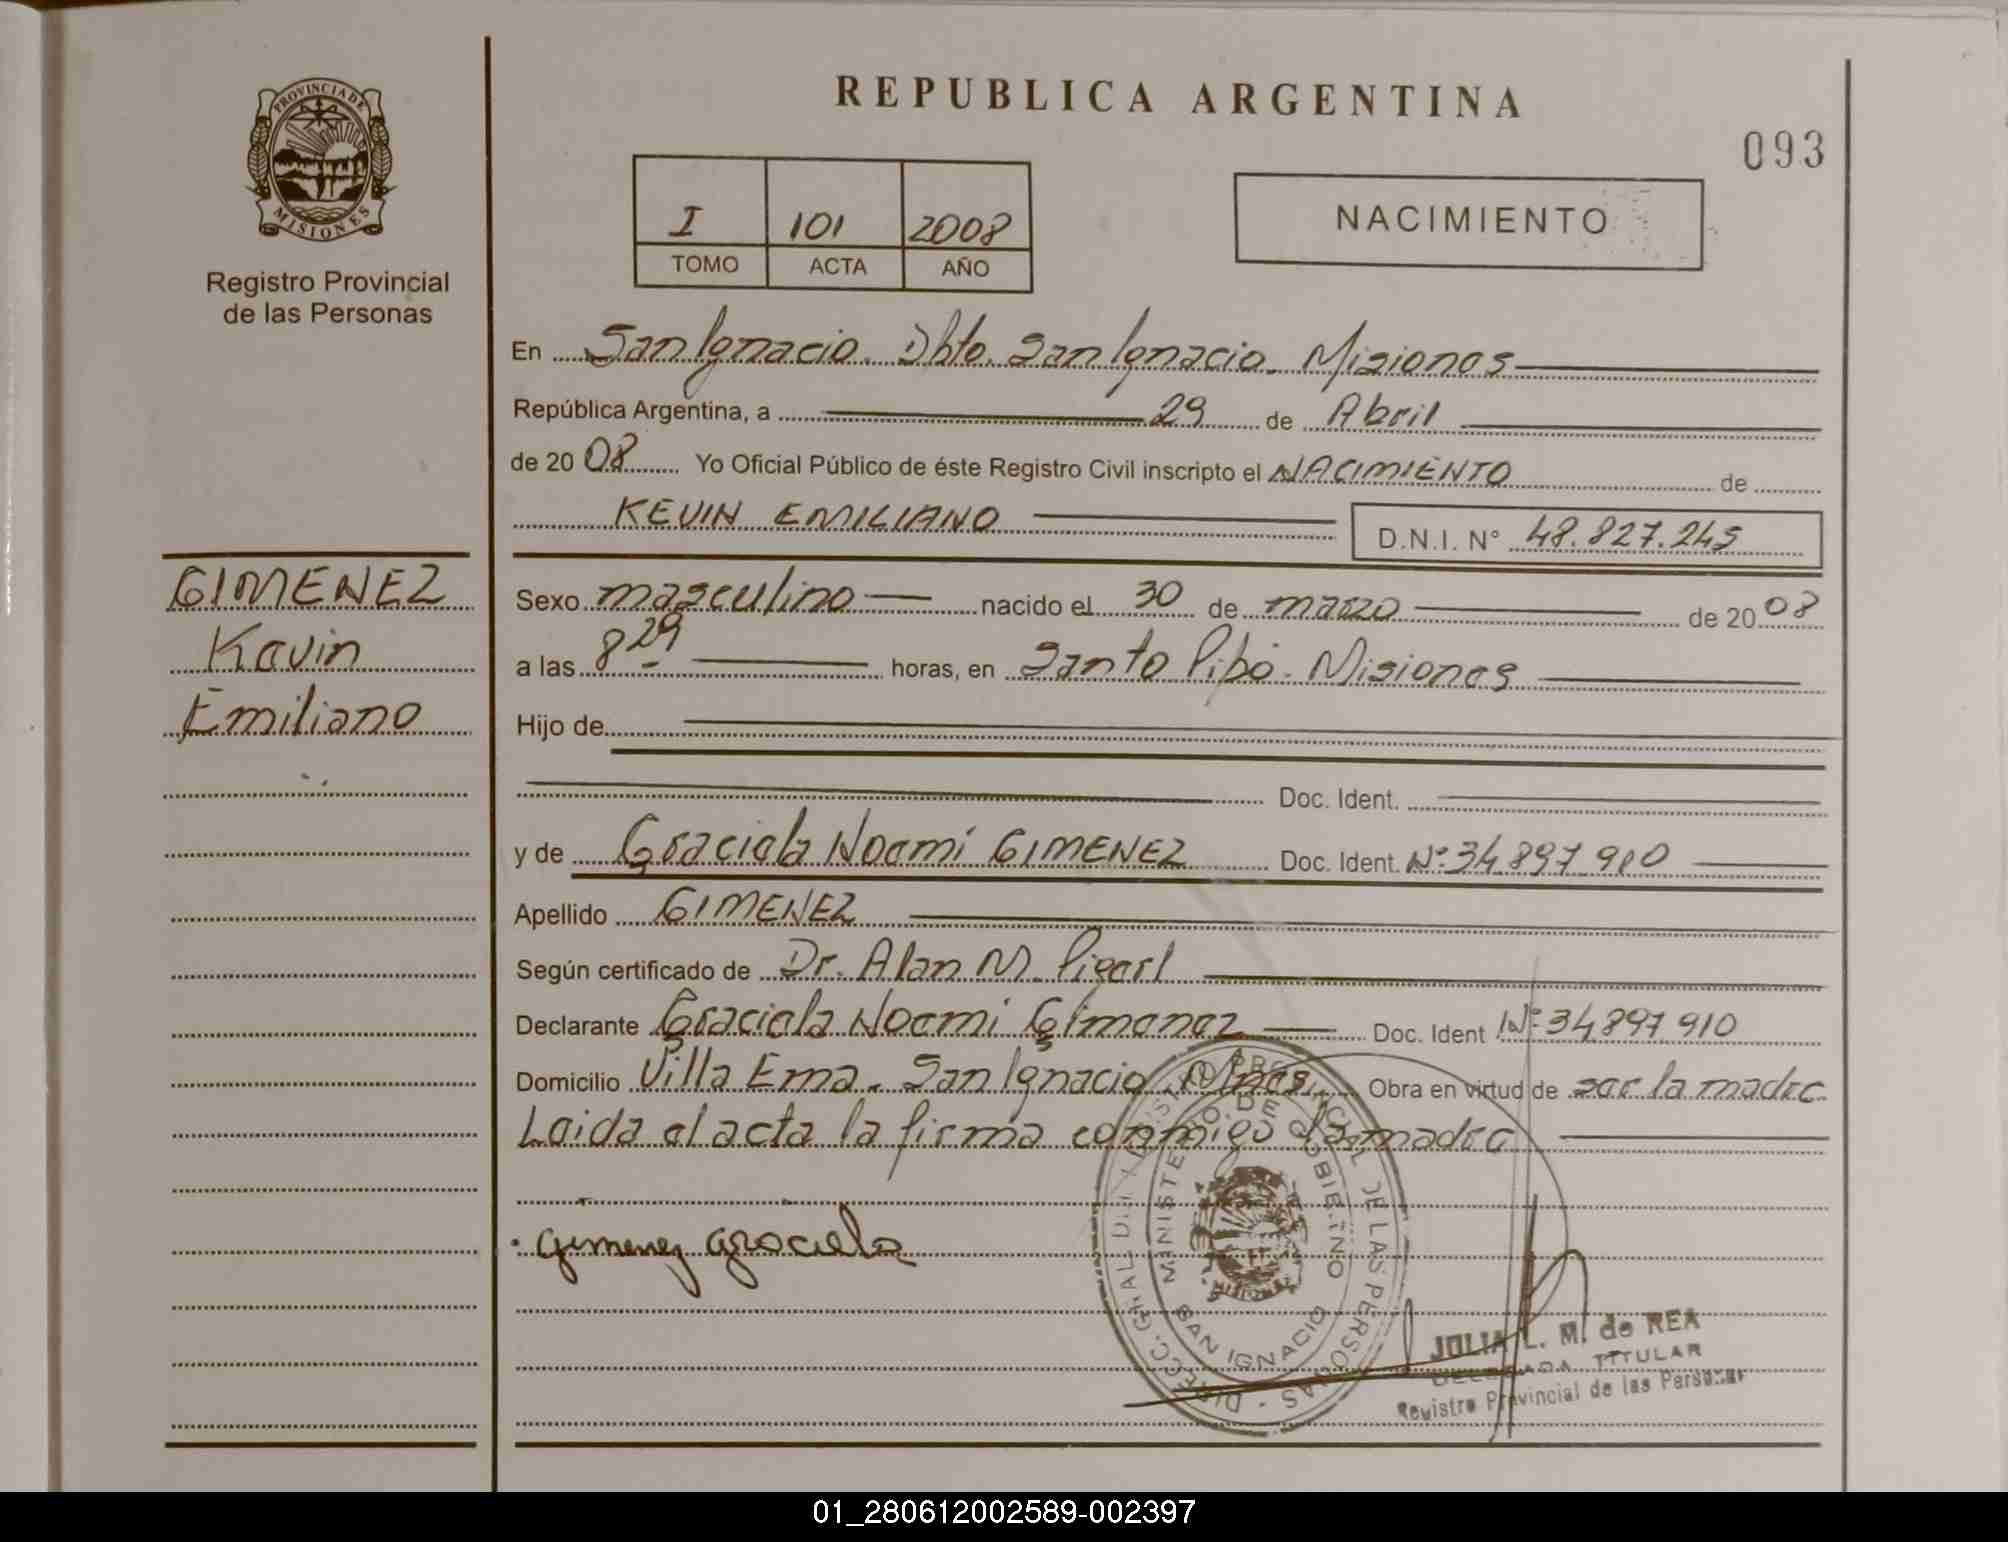 REPUBLICA ARGENTINA
093
PROVINCIA DE MISIONES
Registro Provincial
de las Personas
I 101 2008
TOMO ACTA AÑO
NACIMIENTO
En San Ignacio. Dpto. San Ignacio. Misiones
República Argentina, a 29 de Abril
de 2008 Yo Oficial Público de éste Registro Civil inscripto el NACIMIENTO de
KEVIN EMILIANO D.N.I. N° 48.827.245
GIMENEZ
Kevin
Emiliano
Sexo masculino nacido el 30 de marzo de 2008
a las 8 29 horas, en Santo Pipó. Misiones
Hijo de
Doc. Ident.
y de Graciela Noemí GIMENEZ Doc. Ident. N°: 34 897 910
Apellido GIMENEZ
Según certificado de Dr. Alan M.
Declarante Graciela Noemí Gimenez Doc. Ident N°: 34 897 910
Domicilio Villa Ema. San Ignacio. Mnes. Obra en virtud de ser la madre
Leida el acta la firma conmigo la madre
Gimenez Graciela
MINISTERIO DE GOBIERNO
SAN IGNACIO
JULIA L. M. de REA
DELEGADA TITULAR
Registro Provincial de las Personas
01_280612002589-002397